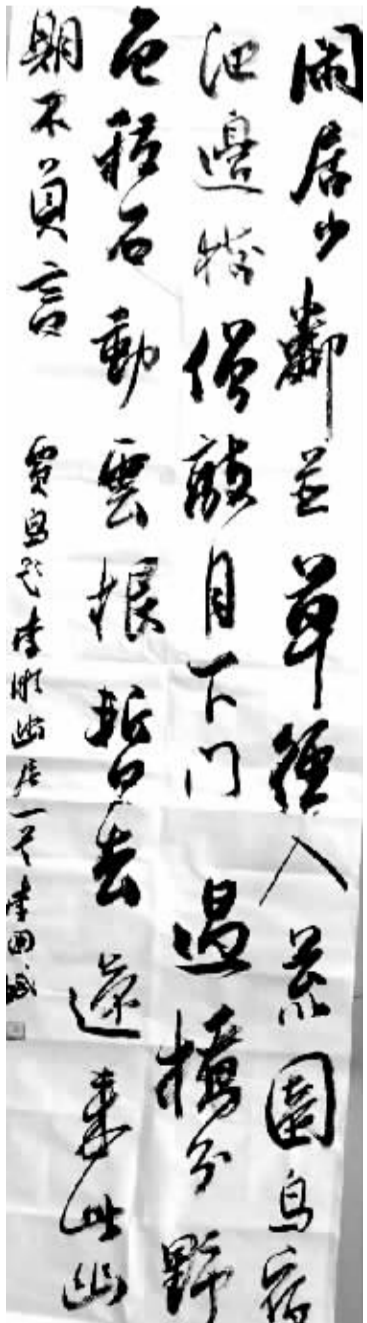 閑居少鄰並草徑入荒園鳥宿
池邊樹僧敲月下門過橋分野
色移石動雲根暫去還來此幽
期不負言
賈島題李凝幽居一首李国斌